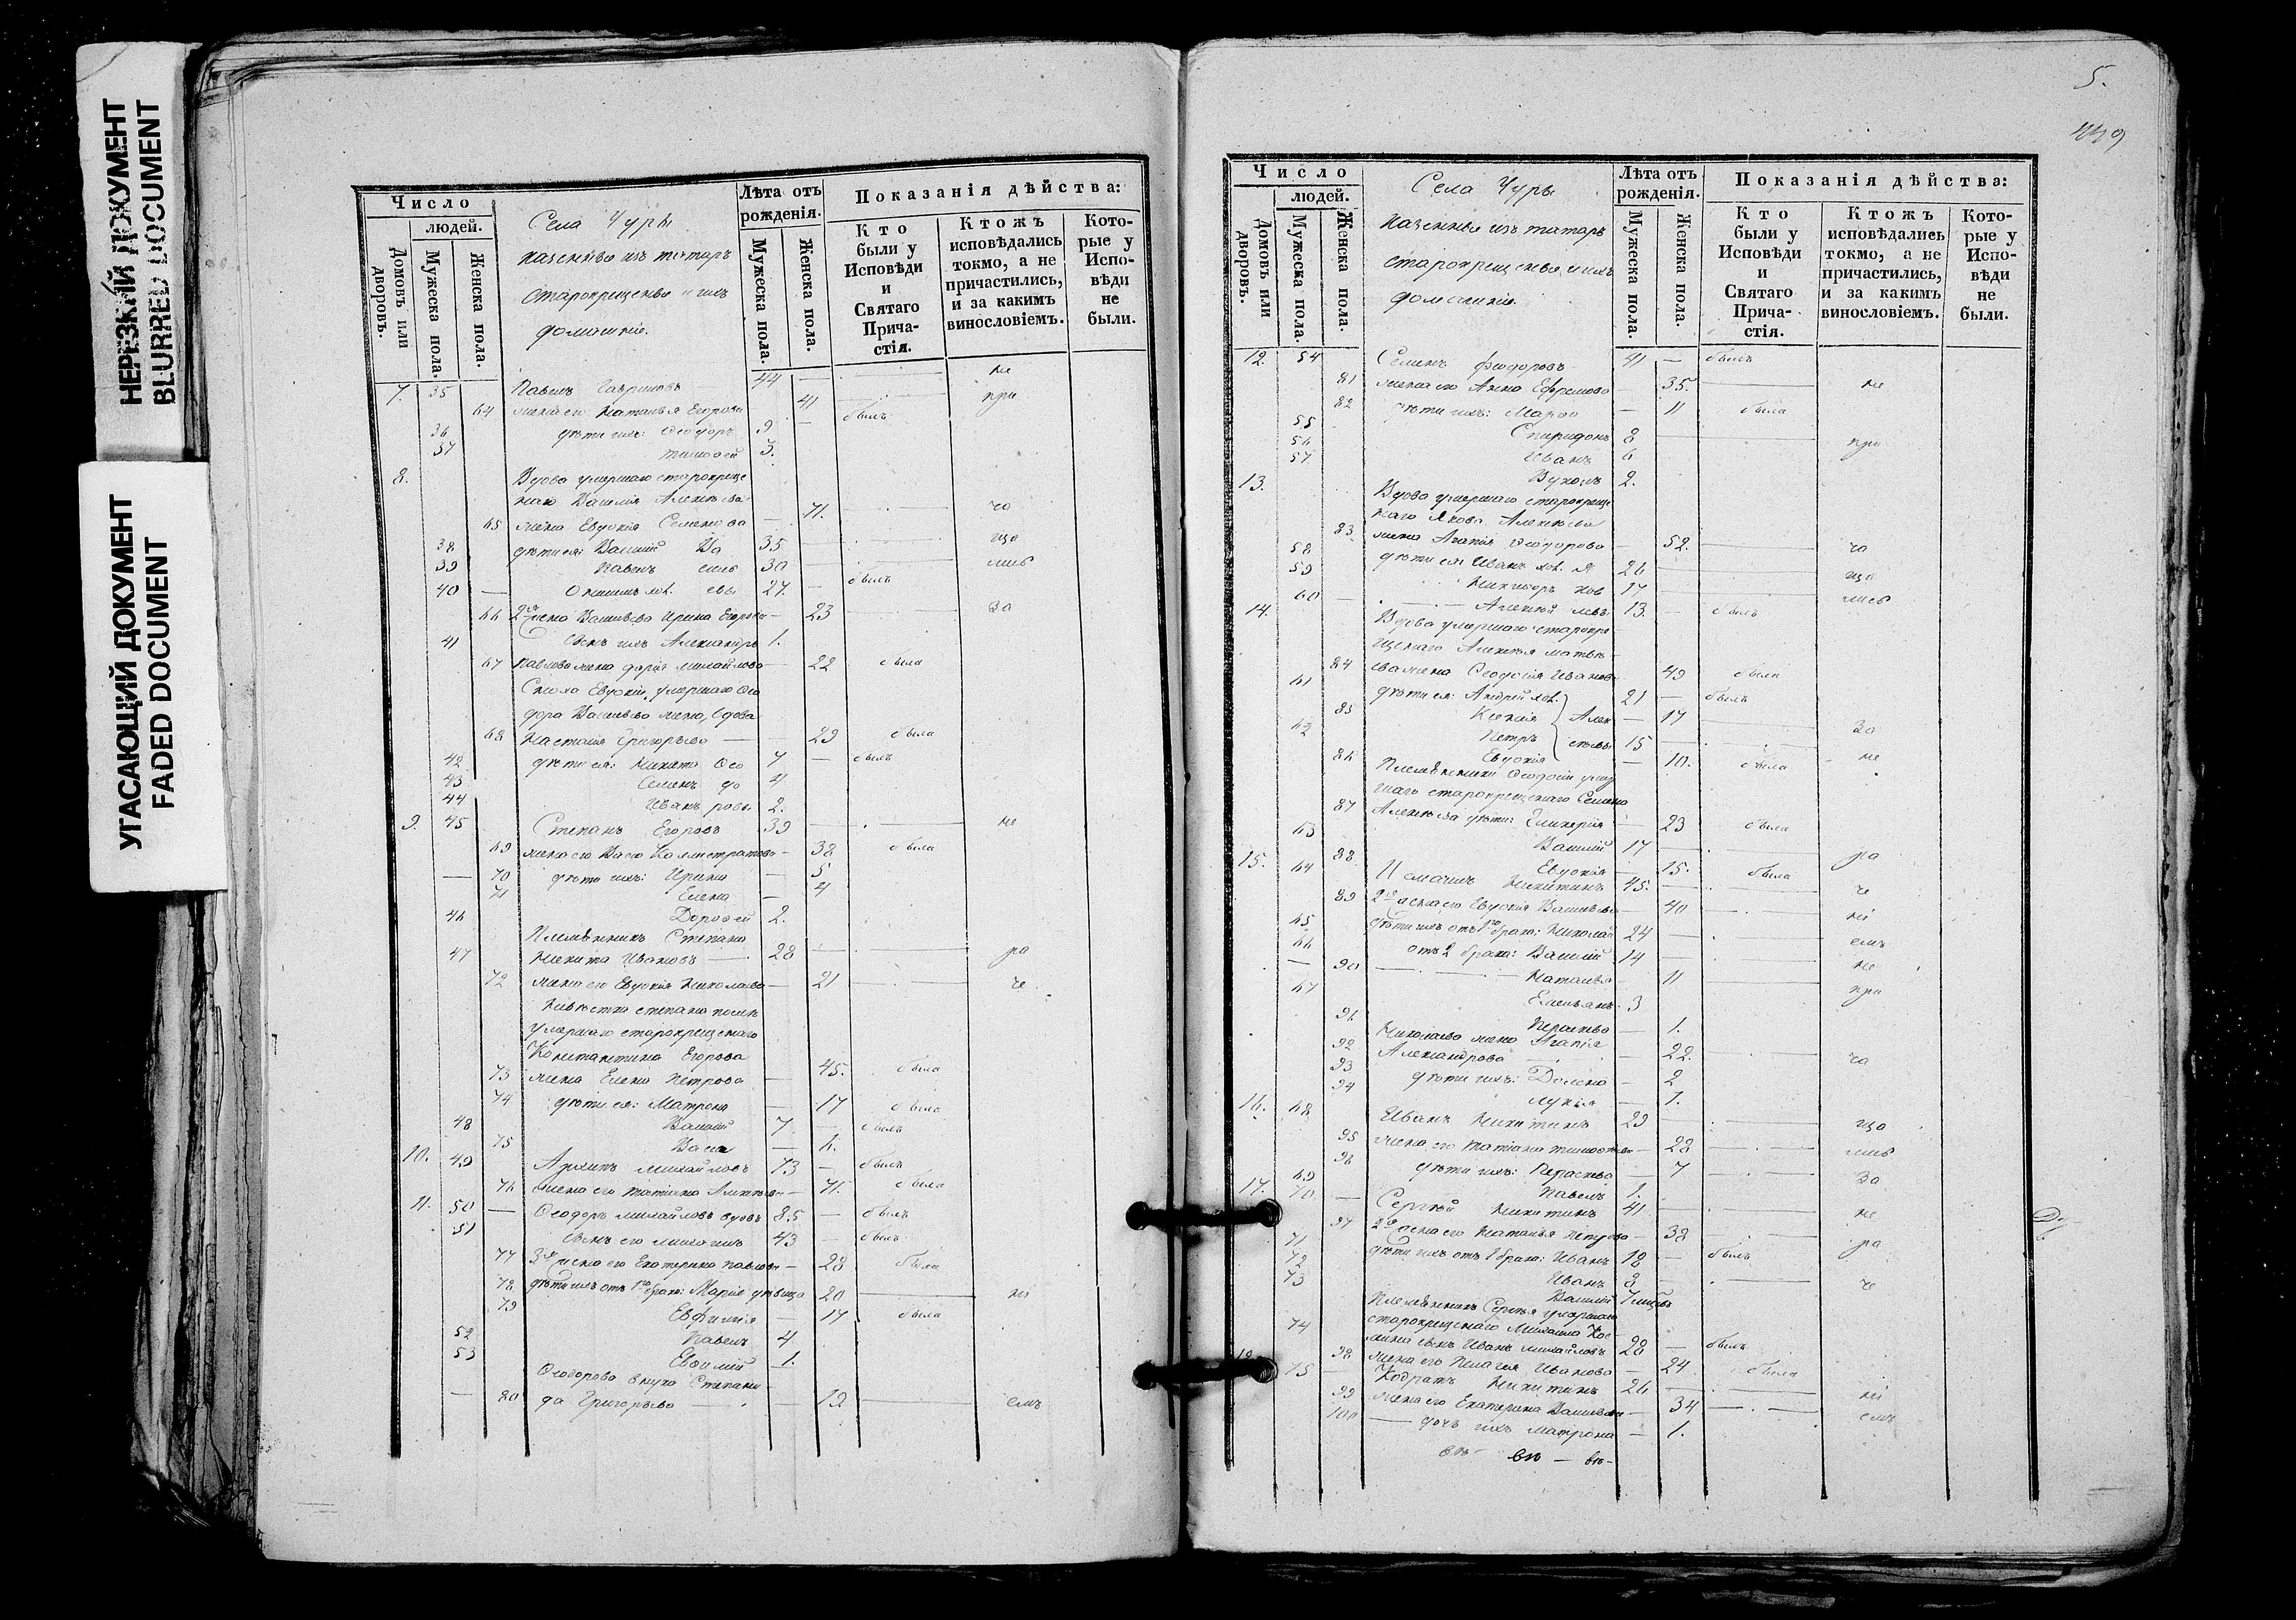 НЕРЕЗКИЙ ДОКУМЕНТ
BLURRED DOCUMENT
УГАСАЮЩИЙ ДОКУМЕНТ
FADED DOCUMENT
Число
людей.
Домовъ или дворовъ.
Мужеска пола.
Женска пола.
Села Чуры
казенные изъ татаръ
старокрещеные и ихъ
домашніе.
Лѣта отъ рожденія.
Мужеска пола.
Женска пола.
Показанія дѣйства:
Кто были у Исповѣди и Святаго Прича-стія.
Ктожъ исповѣдались токмо, а не причастились, и за какимъ винословіемъ.
Кото-рые у Испо-вѣди не были.
7. 35 Павелъ Гавриловъ 44 — не
64 жена его Наталья Егорова 41 при
36 дѣти ихъ: Ѳеодоръ 9 — былъ
37 Тимоѳей 3.
8. Вдова умершаго старокреще
наго Василія Алексѣева
65 жена Евдокія Семенова — 71. ча
38 дѣти ея: Василій Ва 35 ща
39 Павелъ силь 30 лись
40 — Онисимъ хол. евы 27. — былъ
66 2я жена Васильева Ирина Егорова — 23 За
41 сынъ ихъ Александръ 1.
67 Павлова жена Дарья Михайлова — 22 была
Сноха Евдокіи, умершаго Ѳео
дора Васильева жена, вдова
68 Настасія Григорьева — 29 была
42 дѣти ея: Никита Ѳео 7 — былъ
43 Семенъ до 4
44 Иванъ ровы 2.
9. 45 Степанъ Егоровъ 39 — не
69 жена его Васса Каллистратова — 38 была
— 70 дѣти ихъ: Ирина — 5
71 Елена — 4
46 Дороѳей 2.
Племянникъ Степана
47 Никита Ивановъ — 28 ра
72 жена его Евдокія Николаева — 21 че
Невѣстка Степана послѣ
умершаго старокрещенаго
Константина Егорова
73 жена Елена Петрова — 45. была
74 дѣти ея: Матрона — 17 была
48 Василій 7 — былъ
75 Васса — 6.
10. 49 Архипъ Михайловъ 73 — былъ
76 жена его Татіана Алексѣева — 71. была
11. 50 — Ѳеодоръ Михайловъ вдовъ 85 — былъ
51 сынъ его Михаилъ 43 — былъ
77 3я жена его Екатерина Павлова — 28 была
78 дѣти ихъ отъ 1го брака: Марія дѣвица 20 — ні
79 Евфимія — 17 была
52 Павелъ 4
53 Евѳимій 1.
Ѳеодорова внука Степани
— 80 да Григорьева — — 19 емъ
5.
449
Число
людей.
Домовъ или дворовъ.
Мужеска пола.
Женска пола.
Села Чуры
казенные изъ татаръ
старокрещеные и ихъ
домашніе.
Лѣта отъ рожденія.
Мужеска пола.
Женска пола.
Показанія дѣйства:
Кто были у Исповѣди и Святаго Прича-стія.
Ктожъ исповѣдались токмо, а не причастились, и за какимъ винословіемъ.
Кото-рые у Испо-вѣди не были.
12. 54 Семенъ Ѳеодоровъ 41 — былъ
81 жена его Анна Ефремова — 35. не
82 дѣти ихъ: Марѳа — 11 была
55 Спиридонъ 8 при
56 Иванъ 6
57 Вуколъ 2.
13. Вдова умершаго старокреще
наго Якова Алексѣева
83 жена Агапія Ѳеодорова — 52. ча
58 дѣти ея: Иванъ хол. Я 26 ща
59 Никифоръ ков 17 лись
60 — Алексѣй левы 13. — былъ
14. Вдова умершаго старокре-
щенаго Алексѣя Матвѣ-
84 ева жена Ѳеодосія Иванова 49 была
61 дѣти ея: Андрей хол. 21 — былъ
85 Ксенія Алек — 17 За
62 Петръ сѣевы 15
86 Евдокія — 10. была не
Племянники Ѳеодосіи умер
шаго старокрещенаго Семена
87 Алексѣева дѣти: Гликерія — 23 была
63 Василій 17 — ра
88 Евдокія — 15. была
15. 64 Исмаилъ Никитинъ 45. че
89 2я жена его Евдокія Васильева — 40 ні
65 дѣти ихъ отъ 1го брака: Николай 24 емъ
66 отъ 2 брака: Василій 14 не
— 90 Наталья — 11 при
67 Емельянъ 3
91 Пераскева — 1.
Николаева жена Агапія
92 Александрова — 22. ча
93 дѣти ихъ: — 2
94 Лукія — 1.
16. 68 Иванъ Никитинъ 29 ща
95 жена его Татіана Тимоѳеева — 28 лись
96 дѣти ихъ: Пераскева — 7 За
69 Павелъ 1.
17. 70. — Сергѣй Никитинъ 41 не
97 2я жена его Наталья Петрова — 38 ра
71 дѣти ихъ отъ 1 брака: Иванъ 18 — былъ
72 Иванъ 8 — че
73 Василій
Племянникъ Сергѣя умершаго
старокрещенаго Михаила Кос-
74 мина сынъ Иванъ Михайловъ 28 — былъ
98 жена его Пелагея Иванова — 24 была
18. 75 Кодратъ Никитинъ 26 ні
99 жена его Екатерина Васильева — 34 емъ
100 — дочь ихъ Матрона — 1.